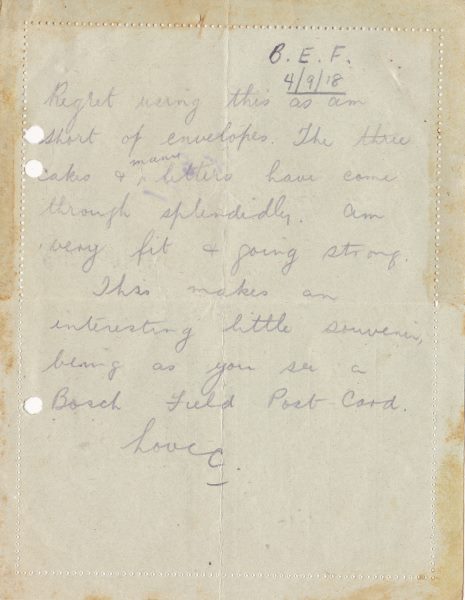 B. E. F.
4/9/18
Regret using this as am
short of envelopes. The three
cakes & many letters have come
through splendidly. Am
very fit & going strong.
This makes an
interesting little souvenir,
being as you see a
Bosch Field Post-Card.
Love C.